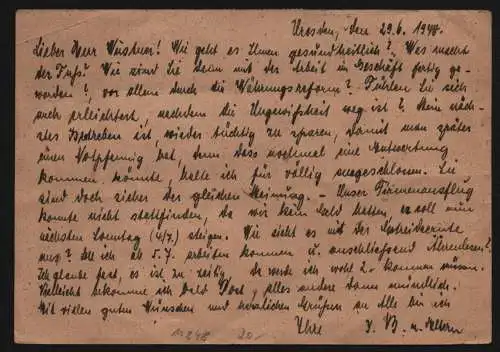 Dresden, den 29.6.1948.
Lieber Herr Wüstner! Wie geht es Ihnen gesundheitlich? Was macht
der Fuß? Wie sind Sie denn mit der Arbeit im Geschäft fertig ge-
worden?, vor allem durch die Währungsreform? Fühlen Sie sich
auch erleichtert, nachdem die Ungewißheit weg ist? Mein näch-
stes Bestreben ist, wieder tüchtig zu sparen, damit man später
einen Notpfennig hat, denn dass nochmal eine Entwertung
kommen könnte, halte ich für völlig ausgeschlossen. Sie
sind doch sicher der gleichen Meinung. - Unser Firmenausflug
konnte nicht stattfinden, da wir kein Geld hatten, er soll nun
nächsten Sonntag (4/7.) steigen. Wie sieht es mit der Getreideernte
aus? Ob ich ab 5.7. arbeiten kommen u. anschließend Ährenlesen?
Ich glaube fast, es ist zu zeitig, da werde ich wohl 2x kommen müssen.
Vielleicht bekomme ich bald Post, alles andere dann mündlich.
Mit vielen guten Wünschen und herzlichen Grüßen an Alle bin ich
Ihre B. u. Eltern
20/-